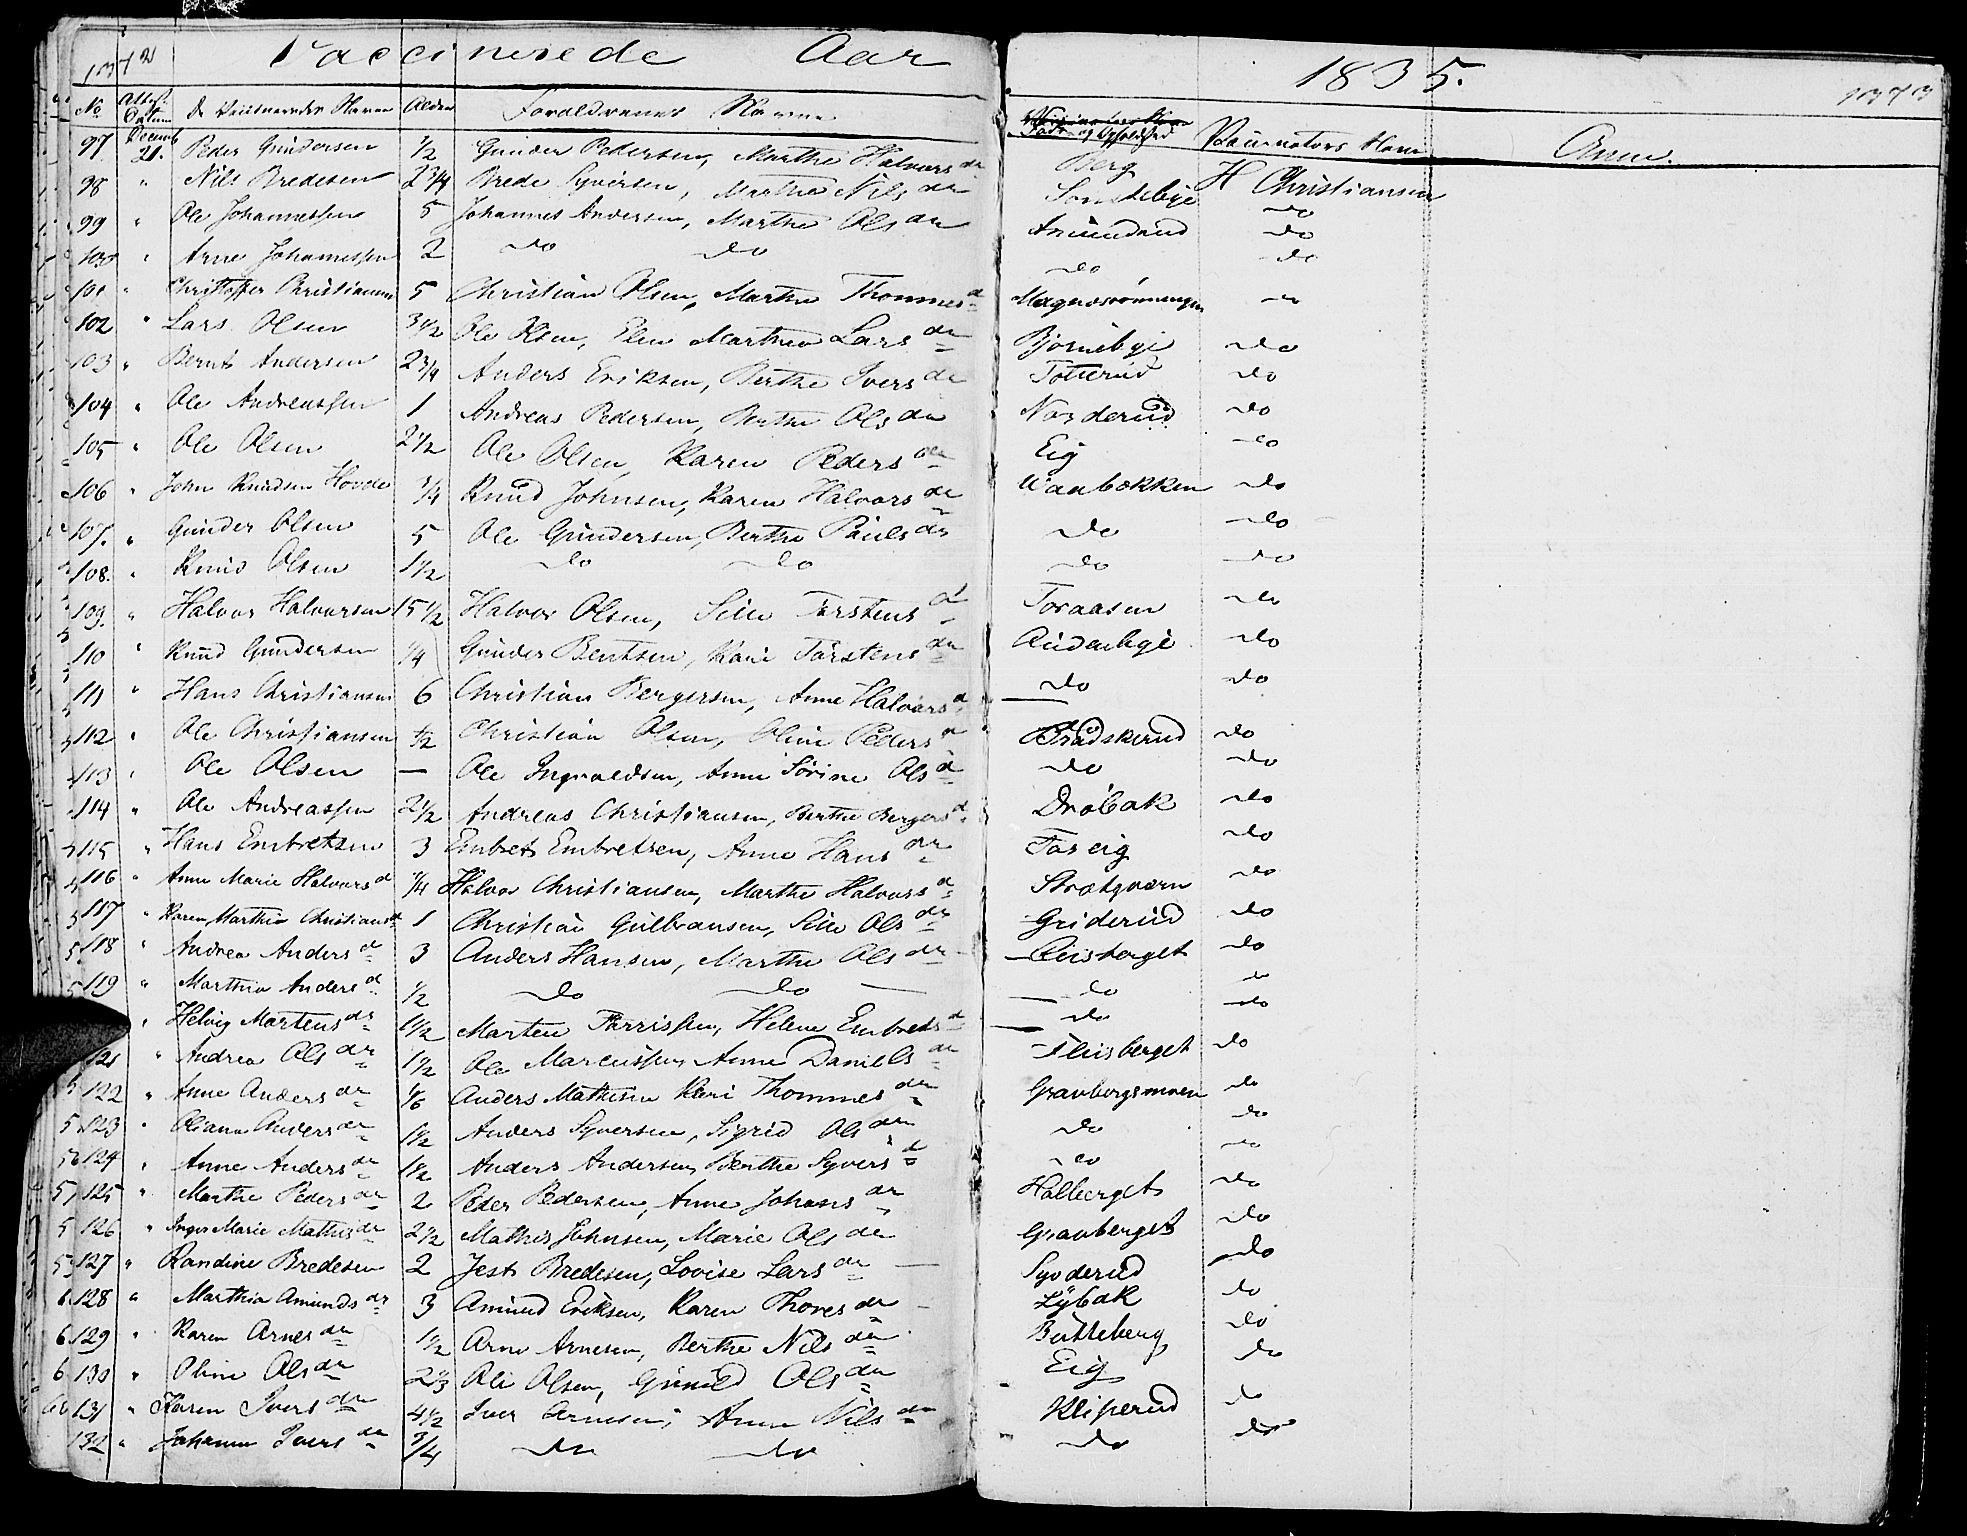 1372 Vaccinerede Aar 1835. 1373
No Attest. Datum De Vaccineredes Navne Alder Forældrenes Navne Føde- og Opholdsted Vaccinators Navn Anm.
97 Decemb 21. Peder Gundersen 1/2 Gunder Pedersen, Marthe Halvorsdr Berg H Christiansen
98 " Nils Bredesen 2 1/4 Brede Syversen, Marthe Nilsdr Sonstebye do
99 " Ole Johannessen 5 Johannes Andersen, Marthe Olsdr Amundrud do
100 " Arne Johannessen 2 do do do do
101 " Christoffer Christiansen 5 Christian Olsen, Marthe Thommesd Magnusrønningen do
102 " Lars Olsen 3 1/2 Ole Olsen, Elen Marthea Larsdr Bjørnebye do
103 " Bernt Andersen 2 3/4 Anders Eriksen, Berthe Iversdr Totterud do
104 " Ole Andreassen 1 Andreas Pedersen, Berthe Olsdr Norderud do
105 " Ole Olsen 2 1/2 Ole Olsen, Karen Pedersdr Eig do
106 " John Knudsen Hovde 1/4 Knud Johnsen, Karen Halvorsdr Waabækken do
107. " Gunder Olsen 5 Ole Gundersen, Berthe Paulsdr do do
108. " Knud Olsen 1 1/2 do do do do
109. " Halvor Halvorsen 15 1/2 Halvor Olsen, Silie Torstensd Toraasen do
110 " Knud Gundersen 1/4 Gunder Bentsen, Kari Torstensdr do
111 " Hans Christiansen 6 Christian Bergersen, Anne Halvorsd do do
112 " Ole Christiansen 1/2 Christian Olsen, Oline Pedersd Braskerud do
113 " Ole Olsen — Ole Ingvaldsen, Anne Sørine Olsd do do
114 " Ole Andreassen 2 1/2 Andreas Christiansen, Berthe Bergersd Drøbak do
115 " Hans Embretsen 3 Embret Embretsen, Anne Hansdr Toreig do
116 " Anne Marie Halvorsd 1/4 Halvor Christiansen, Marthe Halvorsd Strætqværn do
117 " Karen Marthea Christiansd 1 Christian Gulbransen, Silie Olsdr Griderud do
118 " Andrea Andersd 3 Anders Hansen, Marthe Olsdr Fleisberget do
119 " Marthea Andersd 1/2 do do — do do
" Helvig Martensdr 1 1/2 Marten Tarrissen, Helene Embretsd do do
121 " Andrea Olsdr 1 1/2 Ole Marcussen, Anne Danielsdr Fleisberget do
122 " Anne Andersdr 1/6 Anders Mathisen Kari Thommesdr Gravbergsmoen do
123 " Oliana Andersdr 1 1/2 Anders Syversen, Sigrid Olsdr do do
124 " Anne Andersdr 1 1/2 Anders Andersen, Berthe Syversd do do
125 " Marthe Pedersdr 2 Peder Pedersen, Anne Johansdr Halberget do
126 " Inger Marie Mathisdr 2 1/2 Mathis Johnsen, Marie Olsdr Gravberget do
127 " Randine Bredesen 2 Jest Bredesen, Lovise Larsdr — Syoderud do
128 " Marthia Amundsdr 3 Amund Eriksen, Karen Thoresdr Lybak do
129 " Karen Arnesdr 1 1/2 Arne Arnesen, Berthe Nilsdr Butteberg do
130 " Oline Olsdr 2 1/3 Ole Olsen, Gunild Olsdr Eig do
131 " Karen Iversdr 4 1/2 Iver Arnesen, Anne Nilsdr Kliperud do
132 " Johanne Iversdr 3/4 do do do do